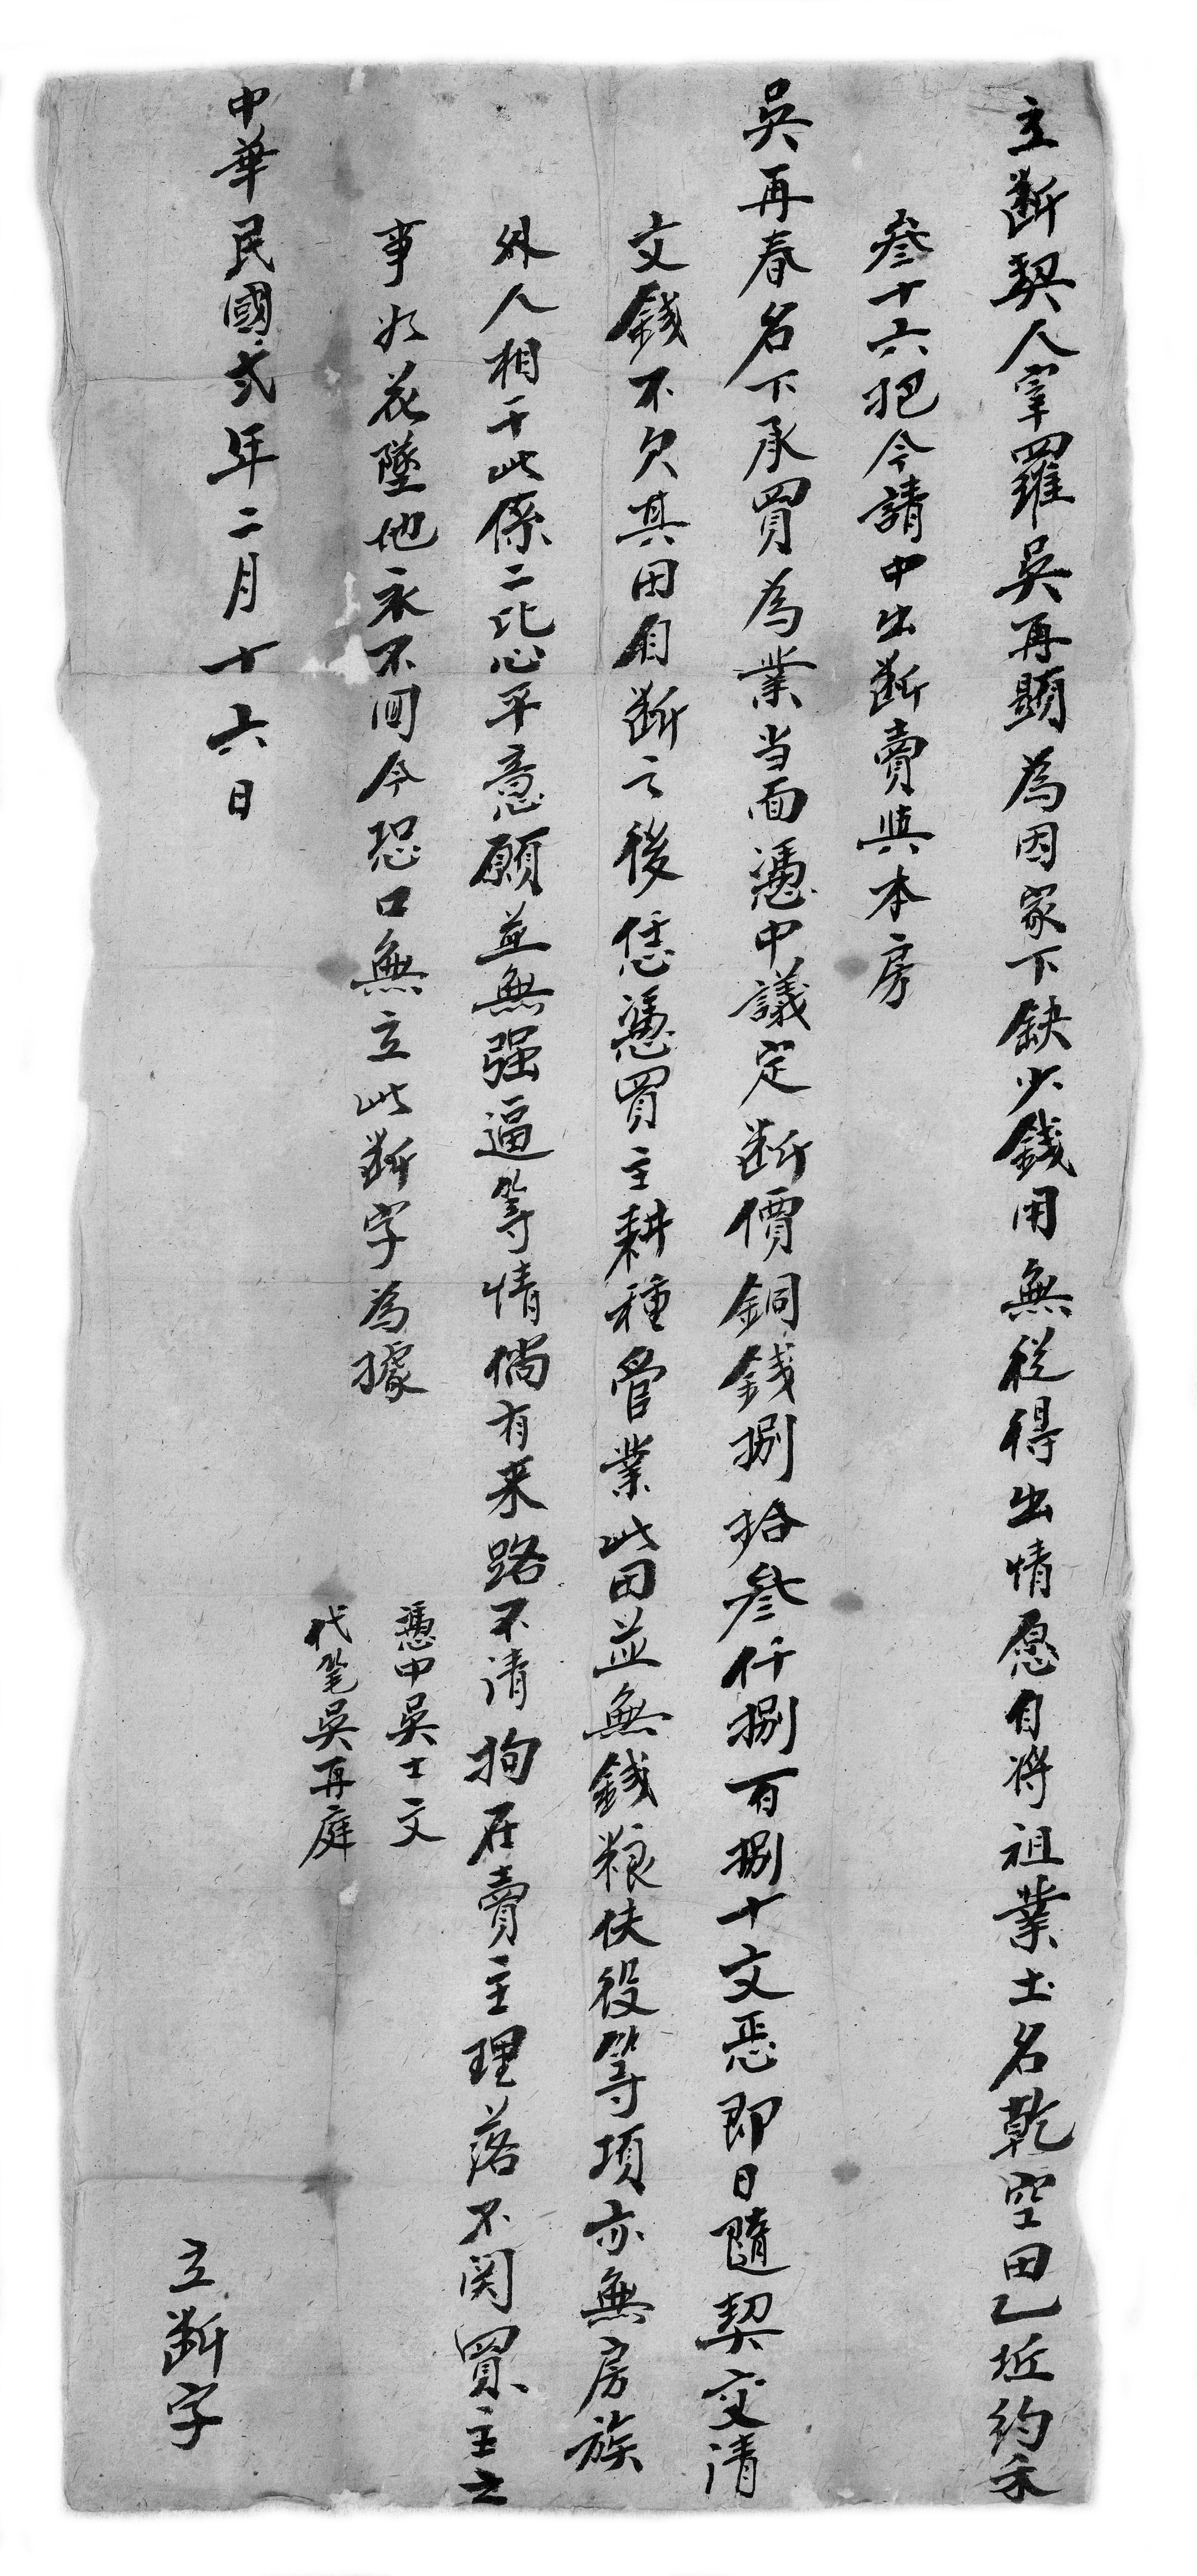 立断契人宰羅吳再顕為因家下缺少錢用無從得出情愿自将祖業土名乾空田乙坵約禾
叄十六把今請中出断賣與本房
吳再春名下承買為業当面憑中議定断價銅錢捌拾叄仟捌百捌十文恁即日隨契交清
文錢不欠其田自断之後恁憑買主耕種管業此田並無錢粮伕役等項亦無房族
外人相干此係二比心平意願並無强逼等情倘有来路不清拘在賣主理落不関買主之
事如花墜地永不回今恐口無立此断字為據
憑中吳士文
代笔吳再庭
中華民國弍年二月十六日
立断字